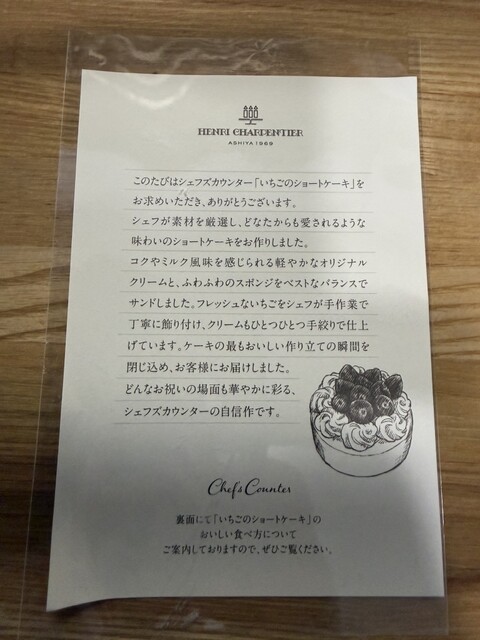 HENRI CHARPENTIER
ASHIYA 1969
このたびはシェフズカウンター「いちごのショートケーキ」を
お求めいただき、ありがとうございます。
シェフが素材を厳選し、どなたからも愛されるような
味わいのショートケーキをお作りしました。
コクやミルク風味を感じられる軽やかなオリジナル
クリームと、ふわふわのスポンジをベストなバランスで
サンドしました。フレッシュないちごをシェフが手作業で
丁寧に飾り付け、クリームもひとつひとつ手絞りで仕上
げています。ケーキの最もおいしい作り立ての瞬間を
閉じ込め、お客様にお届けしました。
どんなお祝いの場面も華やかに彩る、
シェフズカウンターの自信作です。
Chef's Counter
裏面にて「いちごのショートケーキ」の
おいしい食べ方について
ご案内しておりますので、ぜひご覧ください。